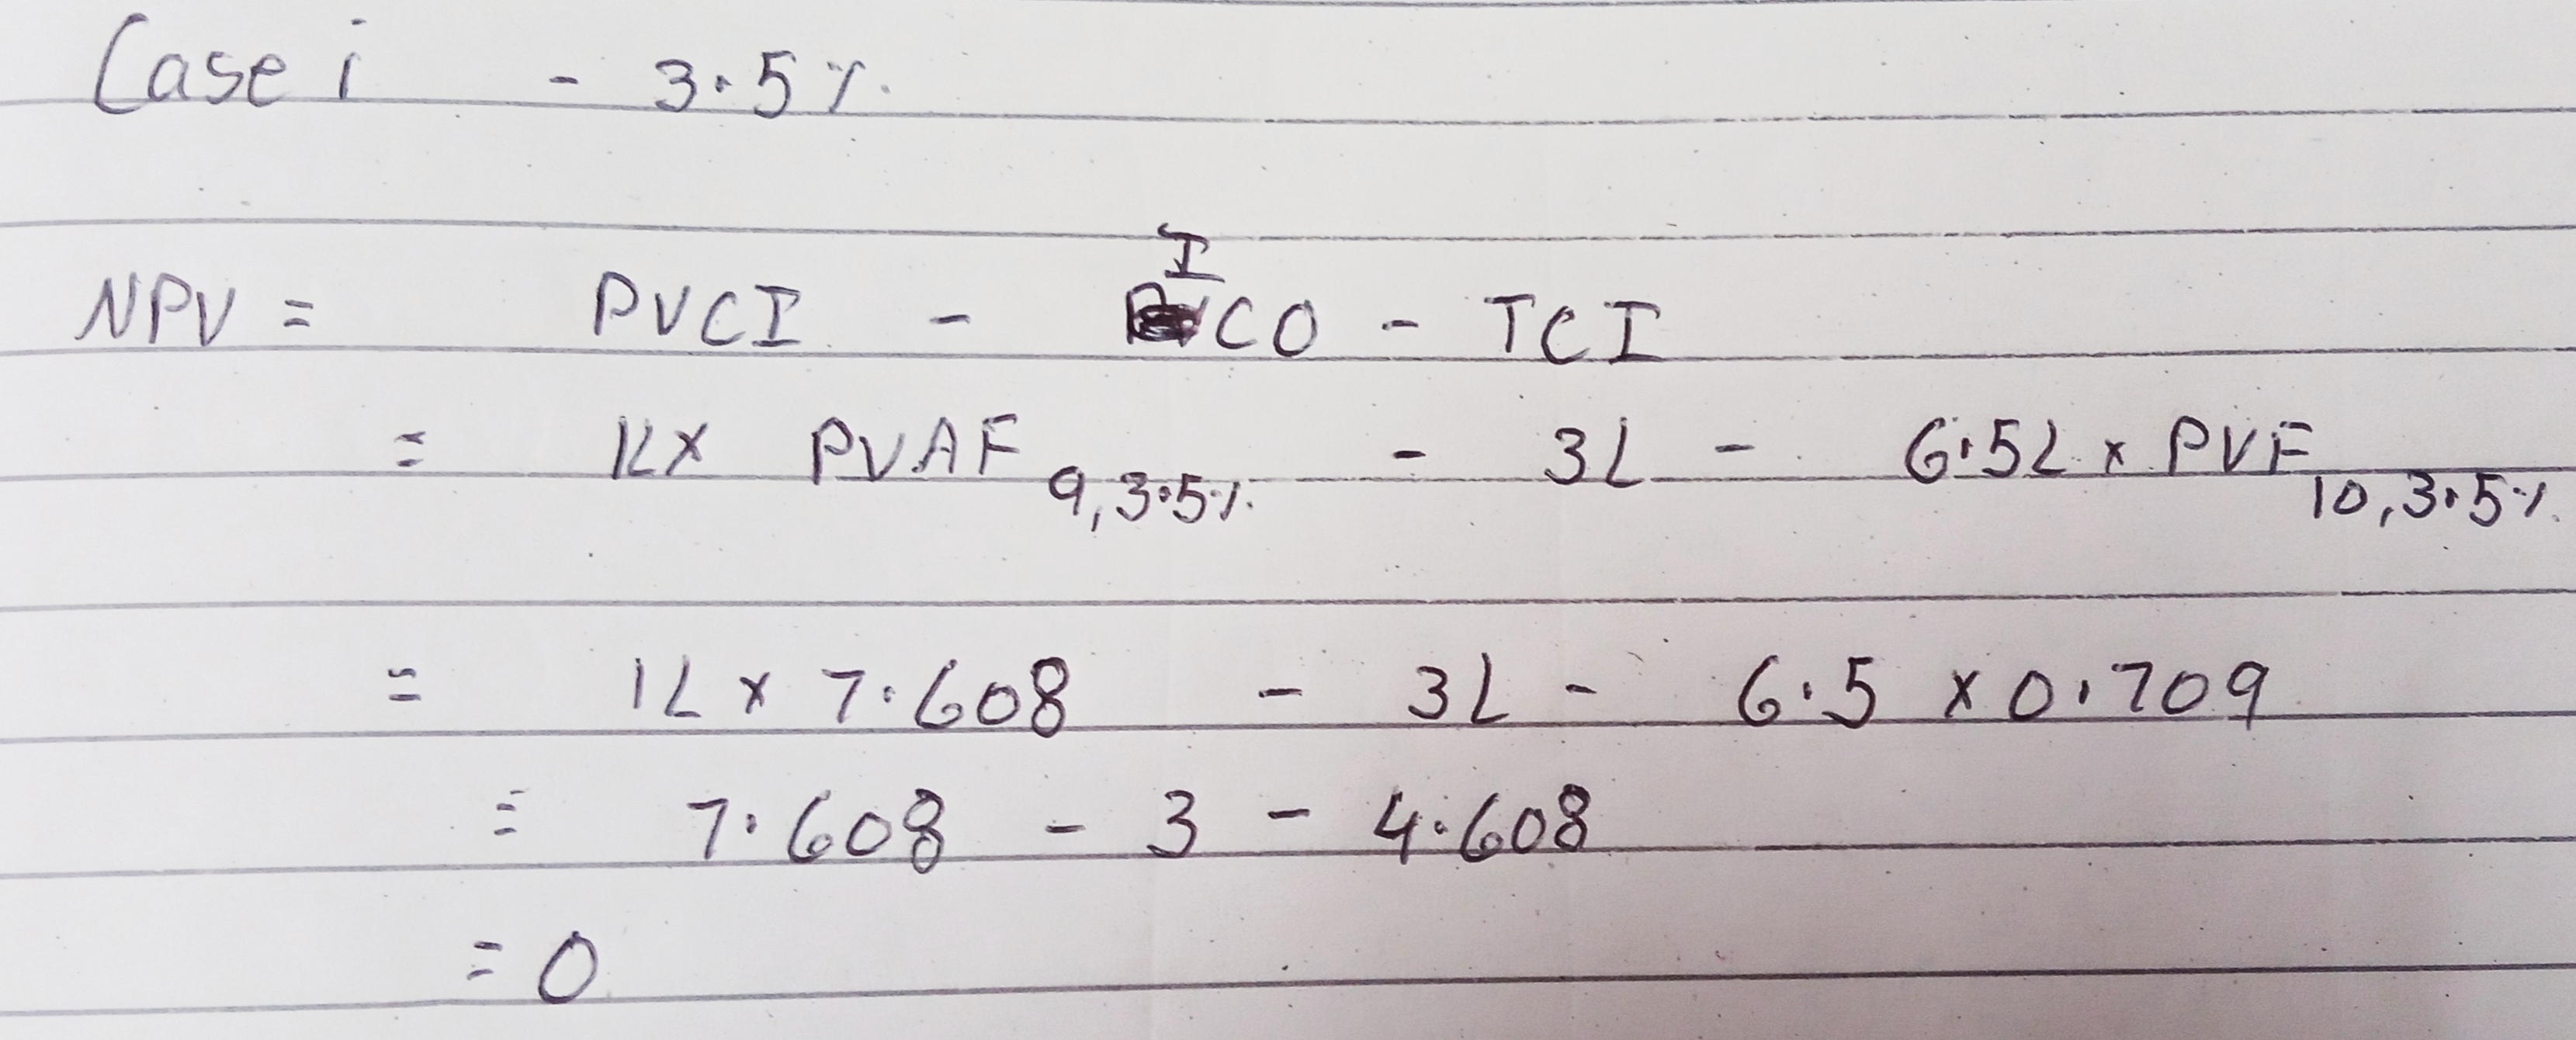 Case i - 3.5%
NPV = PVCI - ICO - TCI
= 1L x PVAF 9, 3.5% - 3L - 6.5L x PVF 10, 3.5%
= 1L x 7.608 - 3L - 6.5 x 0.709
= 7.608 - 3 - 4.608
= 0